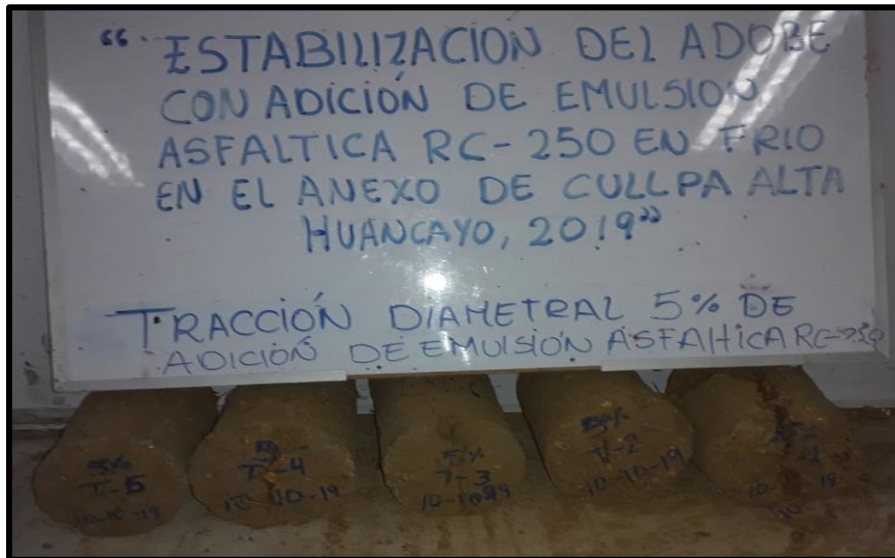 “ESTABILIZACION DEL ADOBE
CON ADICIÓN DE EMULSION
ASFALTICA RC-250 EN FRIO
EN EL ANEXO DE CULLPA ALTA
HUANCAYO, 2019”
TRACCIÓN DIAMETRAL 5% DE
ADICIÓN DE EMULSIÓN ASFALTICA RC-250
5%
T-5
10-10-19
T-4
10-10-19
5%
T-3
T-2
10-10-19